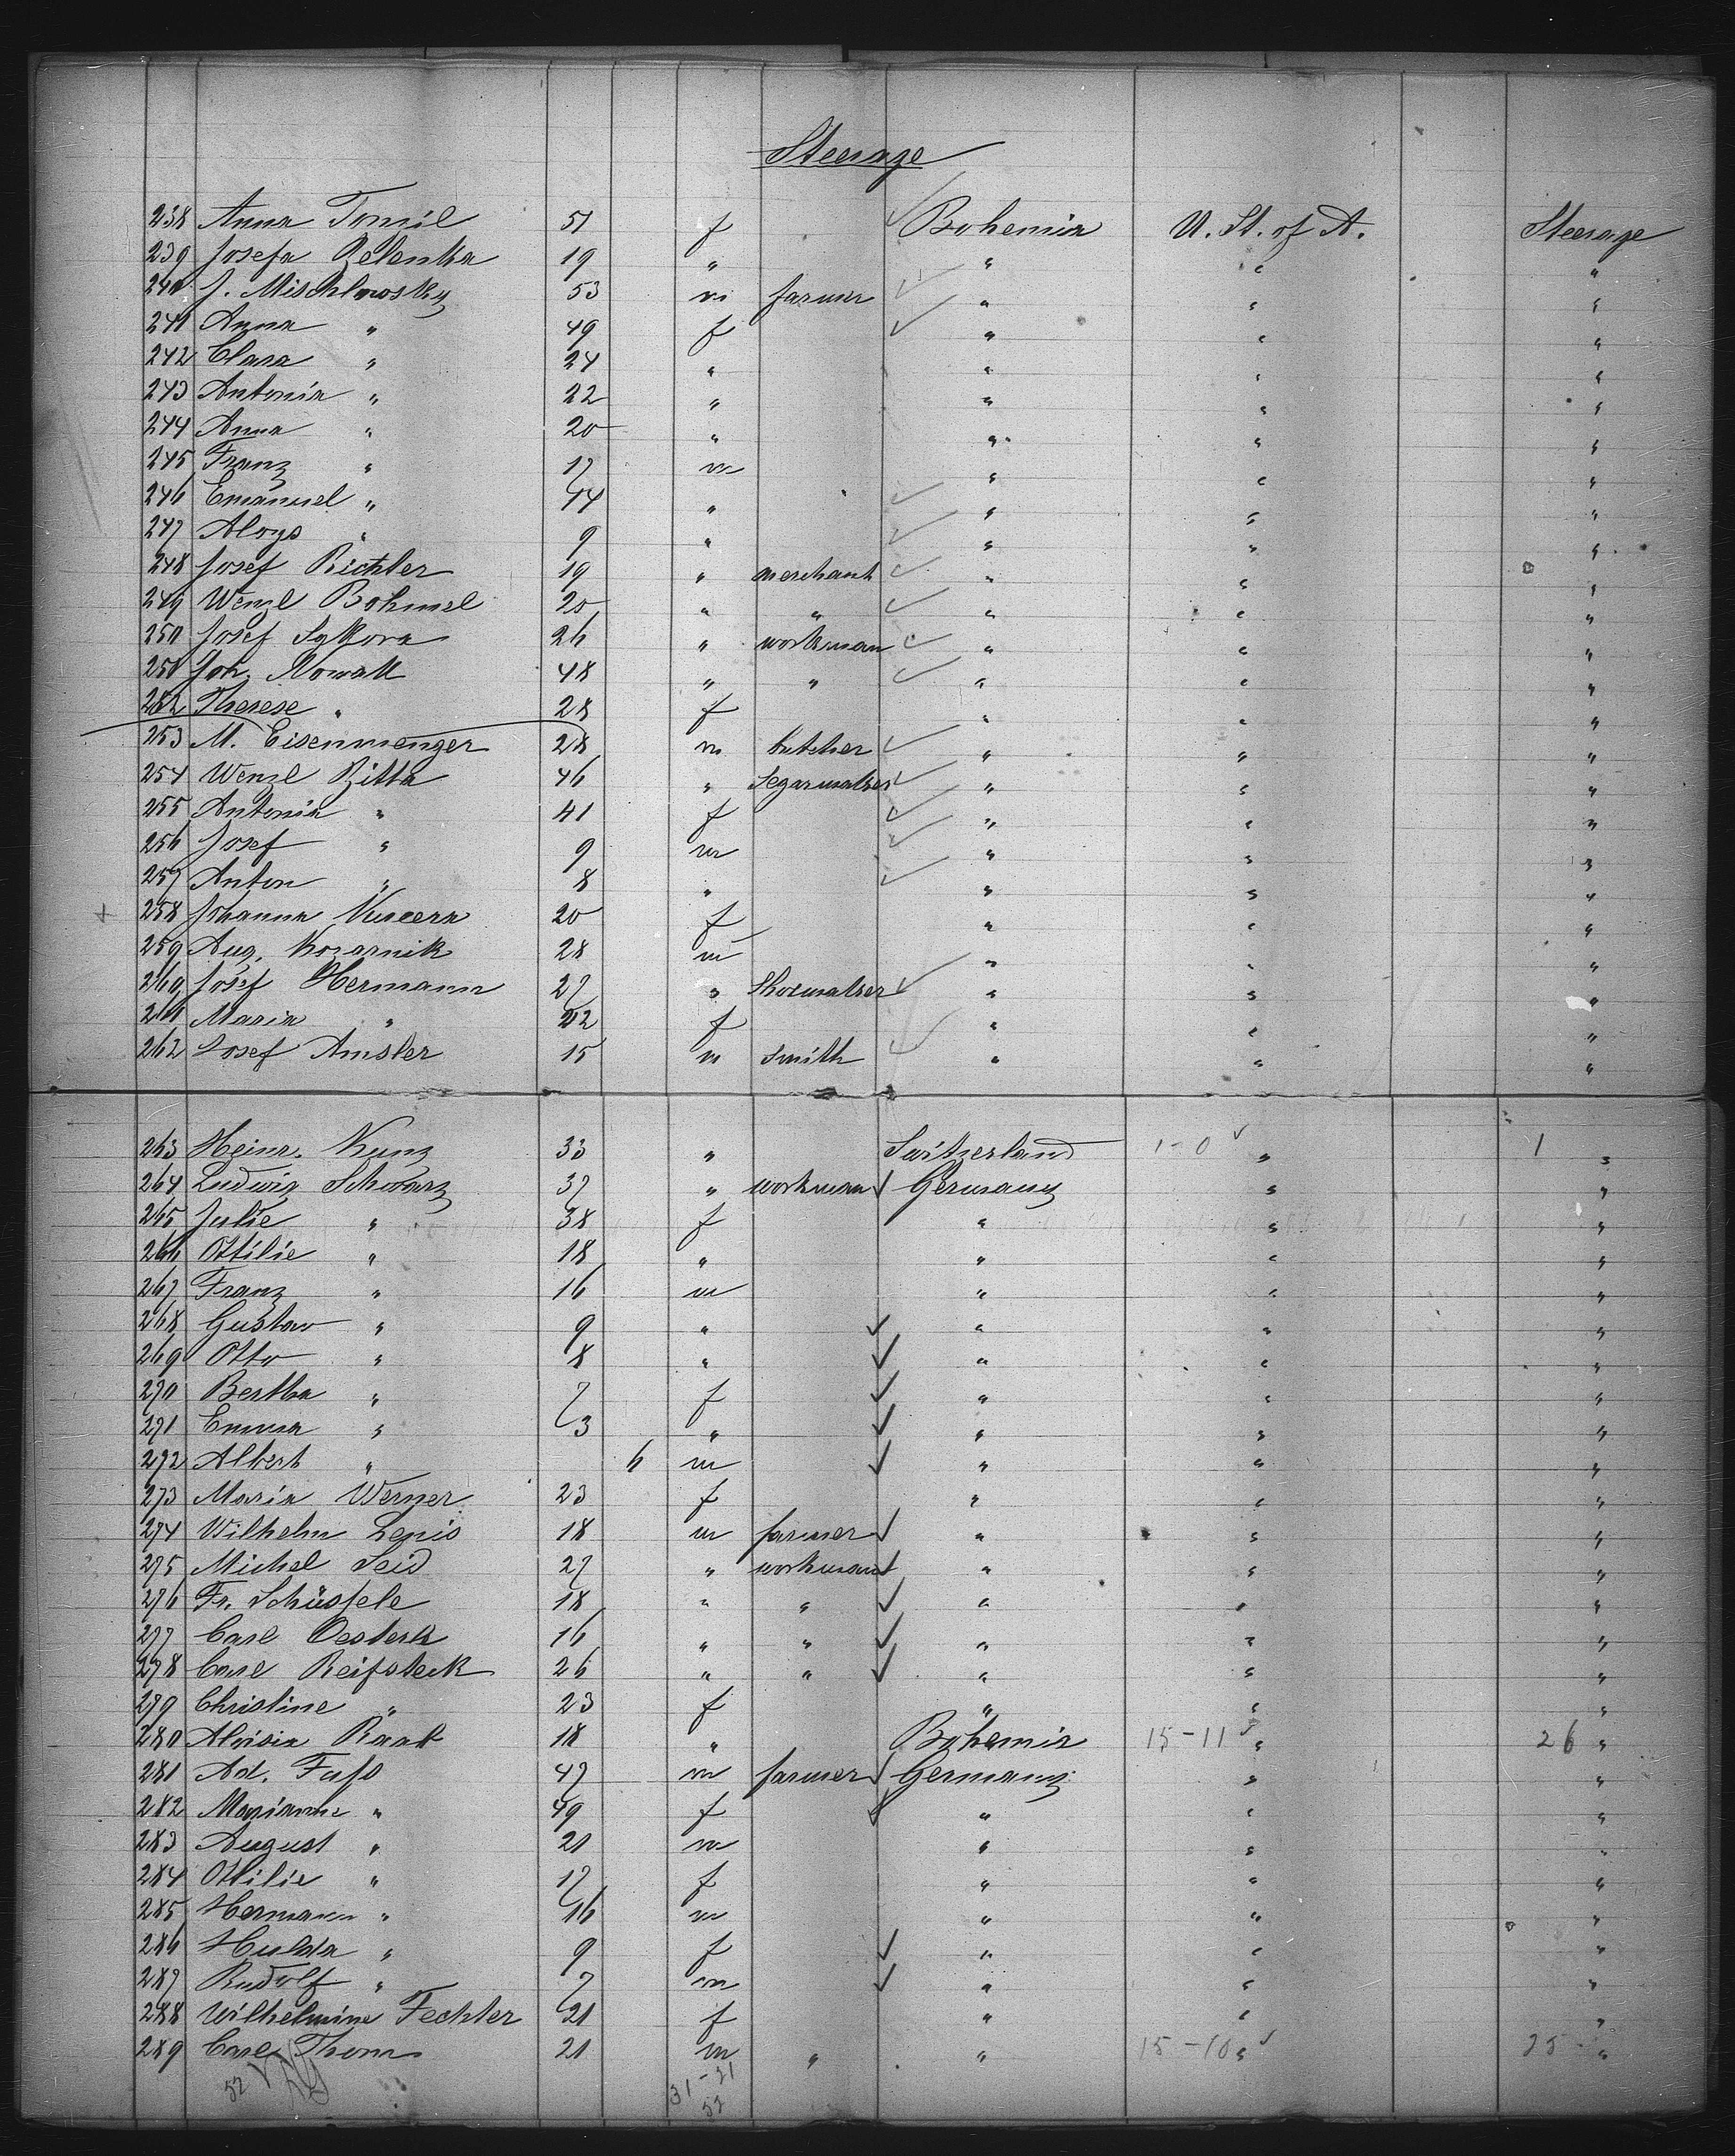 Steerage
238 Anna Tomil 51 f Bohemia U. St. of A. Steerage
239 Josefa Zelenka 19 " " " "
240 J. Mischlowsky 53 m farmer " " "
241 Anna " 49 f " " "
242 Clara " 24 " " " "
243 Antonia " 22 " " " "
244 Anna " 20 " " " "
245 Franz " 17 m " " "
246 Emanuel " 14 " " " "
247 Aloys " 9 " " " "
248 Josef Richter 19 " merchant " " "
249 Wenzl Bohmel 20 " " " " "
250 Josef Sykora 26 " workman " " "
251 Joh. Nowak 48 " " " " "
252 Therese " 28 f " " "
253 M. Eisenmenger 28 m butcher " " "
254 Wenzl Zitta 46 " Segarmaker " " "
255 Antonia " 41 f " " "
256 Josef " 9 m " " "
257 Anton " 8 " " " "
258 Johanna Kucera 20 f " " "
259 Aug. Kozarnik 28 m " " "
260 Josef Hermann 27 " Shoemaker " " "
261 Maria " 22 f " " "
262 Josef Amsler 15 m smith " " "
263 Heinr. Kunz 33 " Switzerland 1-0 " 1 "
264 Ludwig Schwarz 37 " workman Germany " "
265 Julie " 38 f " " "
266 Ottilie " 18 " " " "
267 Franz " 16 m " " "
268 Gustav " 9 " " " "
269 Otto " 8 " " " "
270 Bertha " 7 f " " "
271 Emma " 3 " " " "
272 Albert " 6 m " " "
273 Maria Werner 23 f " " "
274 Wilhelm Lenis 18 m farmer " " "
275 Michel Seid 27 " workman " " "
276 Fr. Schüssele 18 " " " " "
277 Carl Oesterle 16 " " " " "
278 Carl Reifsteck 26 " " " " "
279 Christine " 23 f " " "
280 Aloisia Raab 18 " Bohemia 15-11 " 26 "
281 Ad. Fuss 47 m farmer Germany " "
282 Marianne " 49 f " " "
283 August " 21 m " " "
284 Ottilie " 17 f " " "
285 Hermann " 16 m " " "
286 Hulda " 9 f " " "
287 Rudolf " 7 m " " "
288 Wilhelmine Fechter 21 f " " "
289 Carl Thom 21 m " " 15-10 " 25 "
52 31-21
52